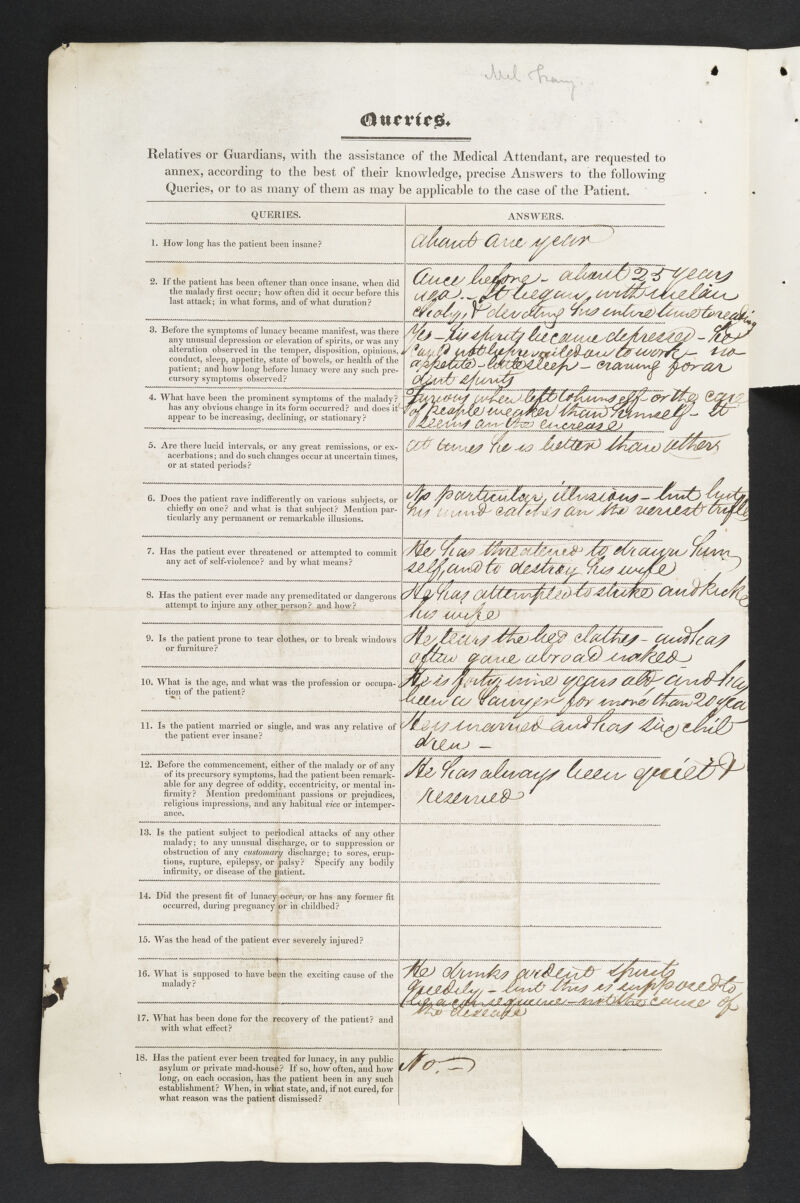 Mel
Queries.
Relatives or Guardians, with the assistance of the Medical Attendant, are requested to
annex, according to the best of their knowledge, precise Answers to the following
Queries, or to as many of them as may be applicable to the case of the Patient.
QUERIES.
ANSWERS.
1. How long has the patient been insane?
about one year
2. If the patient has been oftener than once insane, when did
the malady first occur; how often did it occur before this
last attack; in what forms, and of what duration?
Once before - about 25 years
ago - It began with melan
choly, & devoting his entire time to reading
3. Before the symptoms of lunacy became manifest, was there
any unusual depression or elevation of spirits, or was any
alteration observed in the temper, disposition, opinions,
conduct, sleep, appetite, state of bowels, or health of the
patient; and how long before lunacy were any such pre-
cursory symptoms observed?
Yes - his spirits became depressed - he
could not be prevailed on to work - no
appetite - little sleep - craving for ar
dent spirits
4. What have been the prominent symptoms of the malady?
has any obvious change in its form occurred? and does it
appear to be increasing, declining, or stationary?
Furious when left to himself or the care
of people weaker than himself - It
seems on the encrease
5. Are there lucid intervals, or any great remissions, or ex-
acerbations; and do such changes occur at uncertain times,
or at stated periods?
at times he is better than others
6. Does the patient rave indifferently on various subjects, or
chiefly on one? and what is that subject? Mention par-
ticularly any permanent or remarkable illusions.
No particular, illusions - but but
his mind catches on the veriest trifle
7. Has the patient ever threatened or attempted to commit
any act of self-violence? and by what means?
He has threatened to drown him
self, and to destroy his wife
8. Has the patient ever made any premeditated or dangerous
attempt to injure any other person? and how?
He has attempted to strike and kick
his wife
9. Is the patient prone to tear clothes, or to break windows
or furniture?
He tears the bed clothes - and has
often gone abroad naked
10. What is the age, and what was the profession or occupa-
tion of the patient?
He is forty nine years old and has
been a Sawyer for more than 20 yea
11. Is the patient married or single, and was any relative of
the patient ever insane?
He is married and has six chil
dren -
12. Before the commencement, either of the malady or of any
of its precursory symptoms, had the patient been remark-
able for any degree of oddity, eccentricity, or mental in-
firmity? Mention predominant passions or prejudices,
religious impressions, and any habitual vice or intemper-
ance.
He has always been quiet &
reserved
13. Is the patient subject to periodical attacks of any other
malady; to any unusual discharge, or to suppression or
obstruction of any customary discharge; to sores, erup-
tions, rupture, epilepsy, or palsy? Specify any bodily
infirmity, or disease of the patient.
14. Did the present fit of lunacy occur, or has any former fit
occurred, during pregnancy or in childbed?
15. Was the head of the patient ever severely injured?
16. What is supposed to have been the exciting cause of the
malady?
He drinks ardent spirits
greedily - but this is supposed to
be a consequence - not the cause of
the disease
17. What has been done for the recovery of the patient? and
with what effect?
18. Has the patient ever been treated for lunacy, in any public
asylum or private mad-house? If so, how often, and how
long, on each occasion, has the patient been in any such
establishment? When, in what state, and, if not cured, for
what reason was the patient dismissed?
No. -